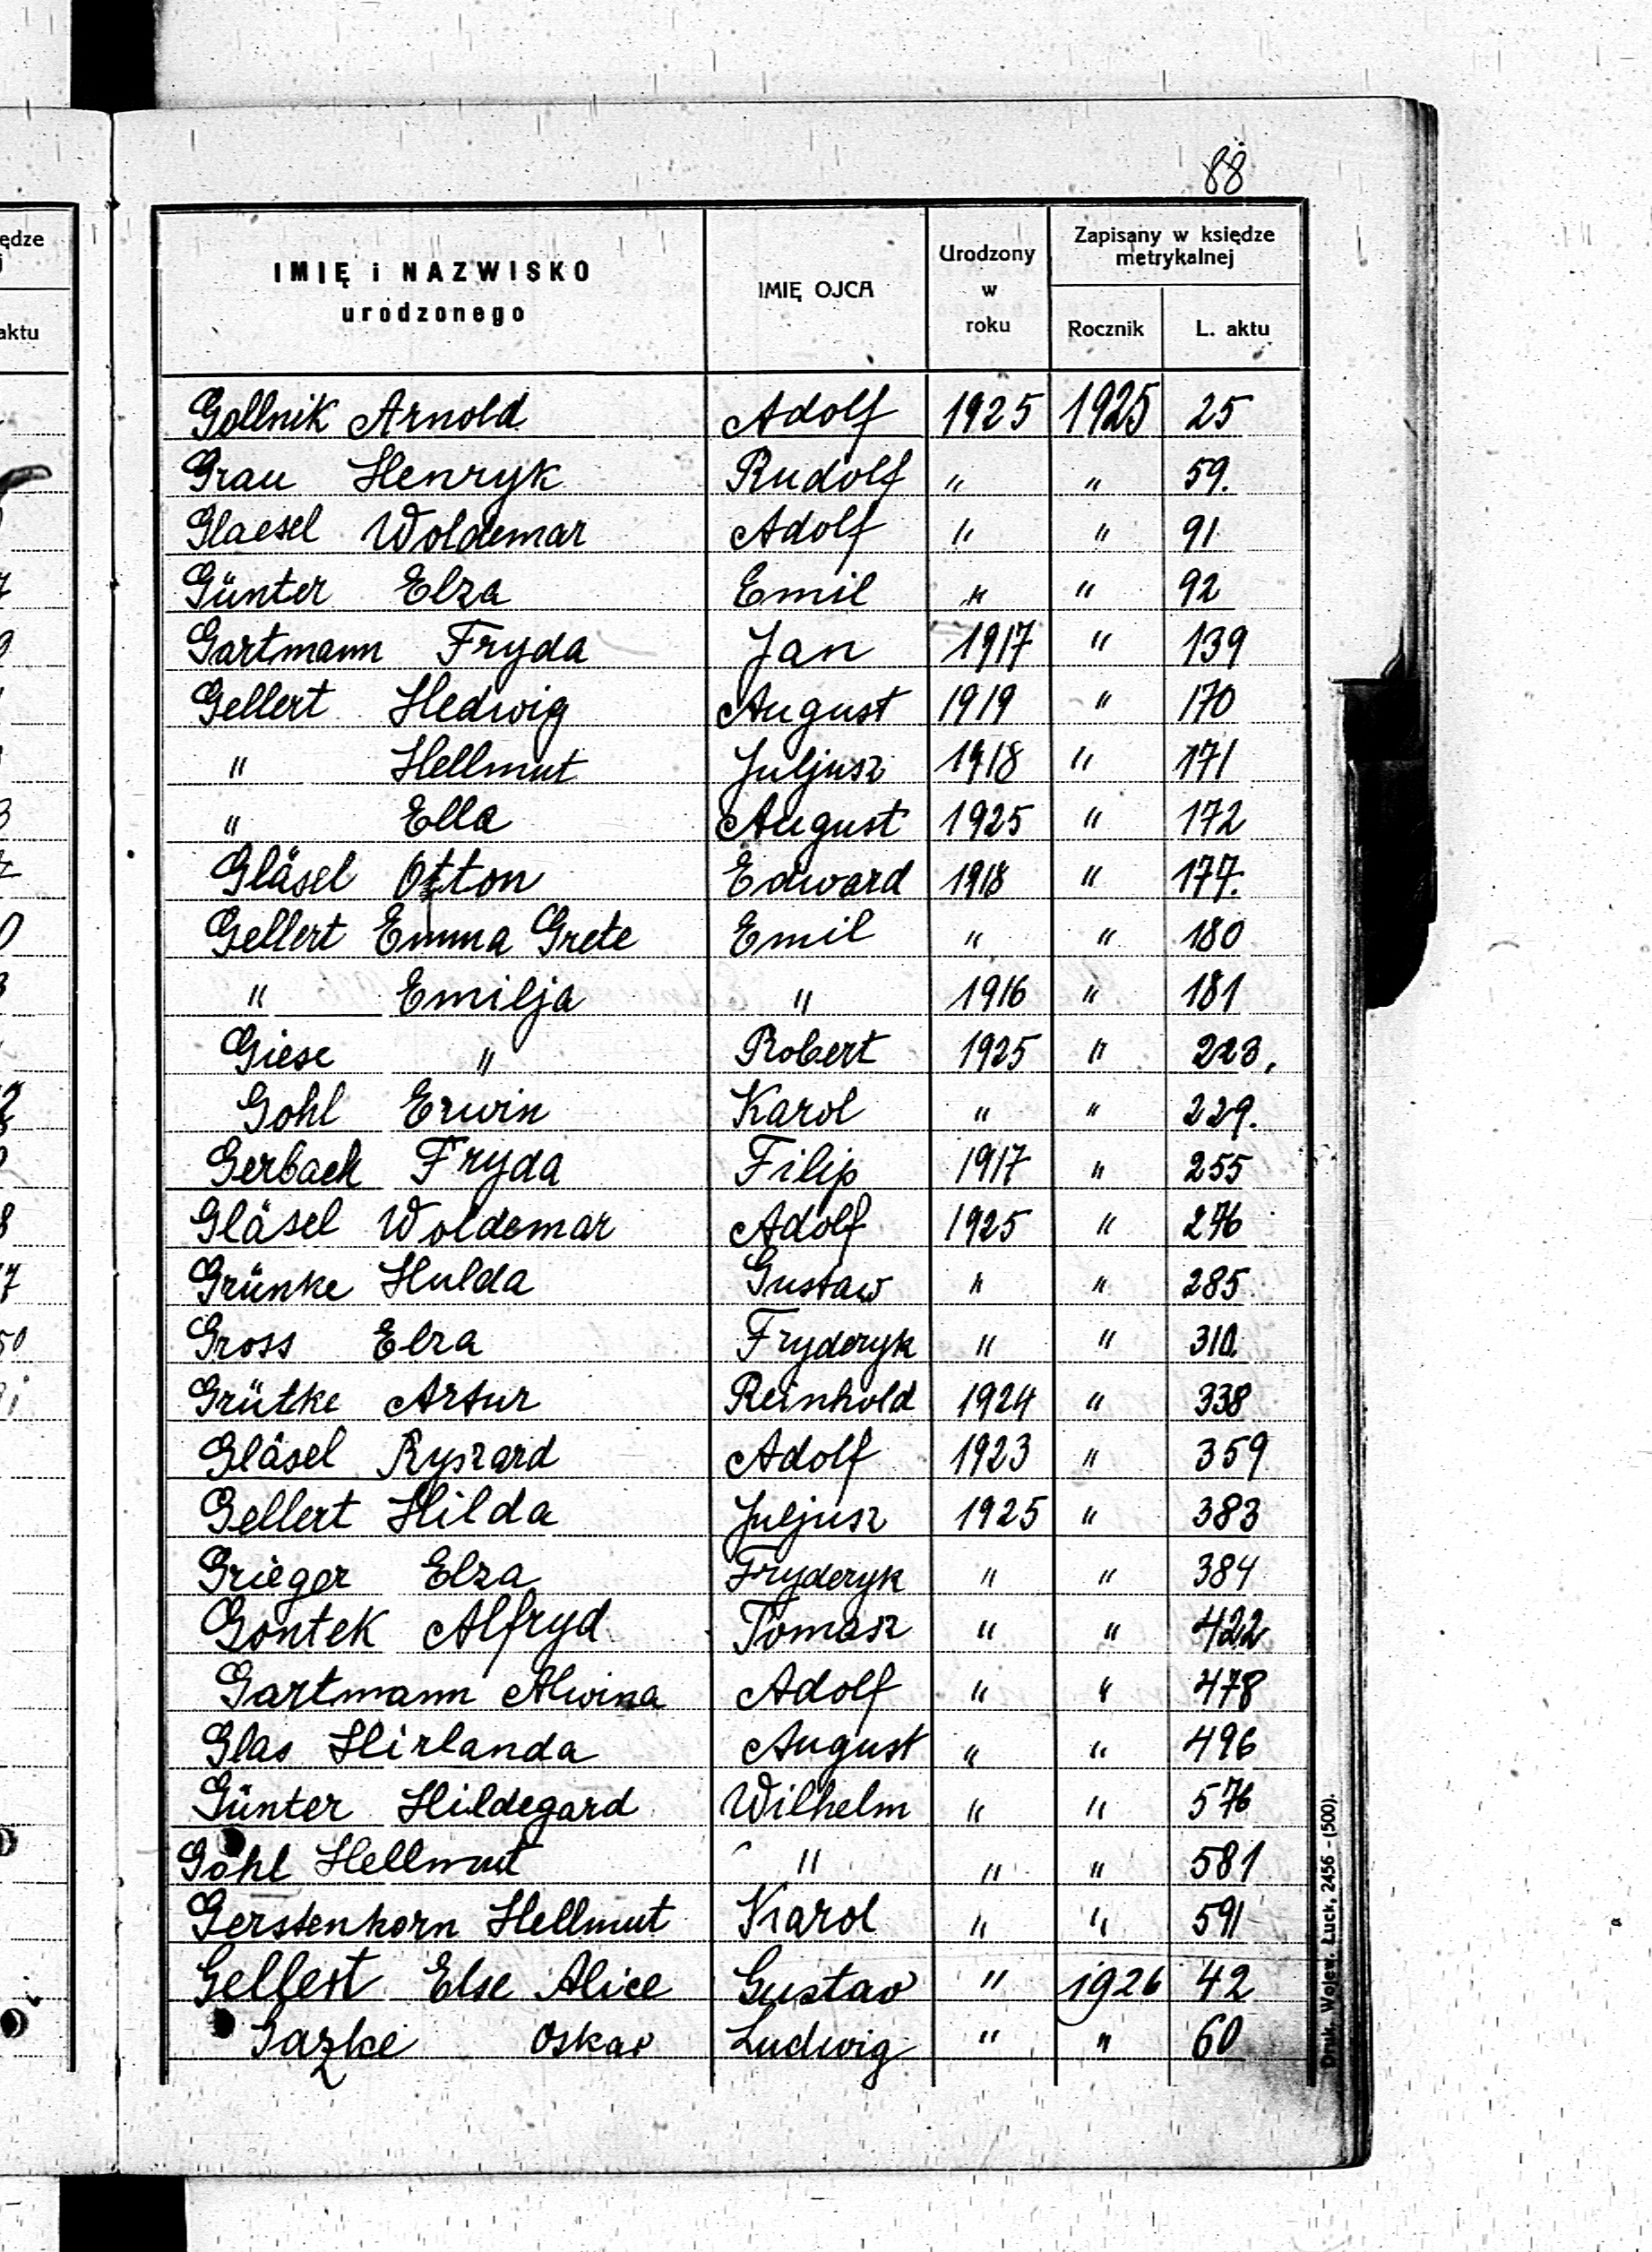 88
IMIĘ i NAZWISKO urodzonego IMIĘ OJCA Urodzony w roku Zapisany w księdze metrykalnej Rocznik L. aktu
Gollnik Arnold Adolf 1925 1925 25
Grau Henryk Rudolf " " 59.
Glaesel Woldemar Adolf " " 91
Günter Elza Emil " " 92
Gartmann Fryda Jan 1917 " 139
Gellert Hedwig August 1919 " 170
" Hellmut Juljusz 1918 " 171
" Ella August 1925 " 172
Gläsel Otton Edward 1918 " 177.
Gellert Emma Grete Emil " " 180
" Emilja " 1916 " 181
Giese " Robert 1925 " 223.
Gohl Erwin Karol " " 229.
Gerbach Fryda Filip 1917 " 255
Gläsel Woldemar Adolf 1925 " 276
Grünke Hulda Gustaw " " 285
Gross Elza Fryderyk " " 310.
Grütke Artur Reinhold 1924 " 338
Gläsel Ryszard Adolf 1923 " 359
Gellert Hilda Juljusz 1925 " 383
Grieger Elza Fryderyk " " 384
Gontek Alfryd Tomasz " " 422
Gartmann Alwina Adolf " " 478
Glas Hirlanda August " " 496
Günter Hildegard Wilhelm " " 576
Gohl Hellmut " " " 581
Gerstenkorn Hellmut Karol " " 591
Gellert Else Alice Gustav " 1926 42
Gazke Oskar Ludwig " " 60
Druk. Wojew. Łuck, 2456 - (500).
ędze
aktu